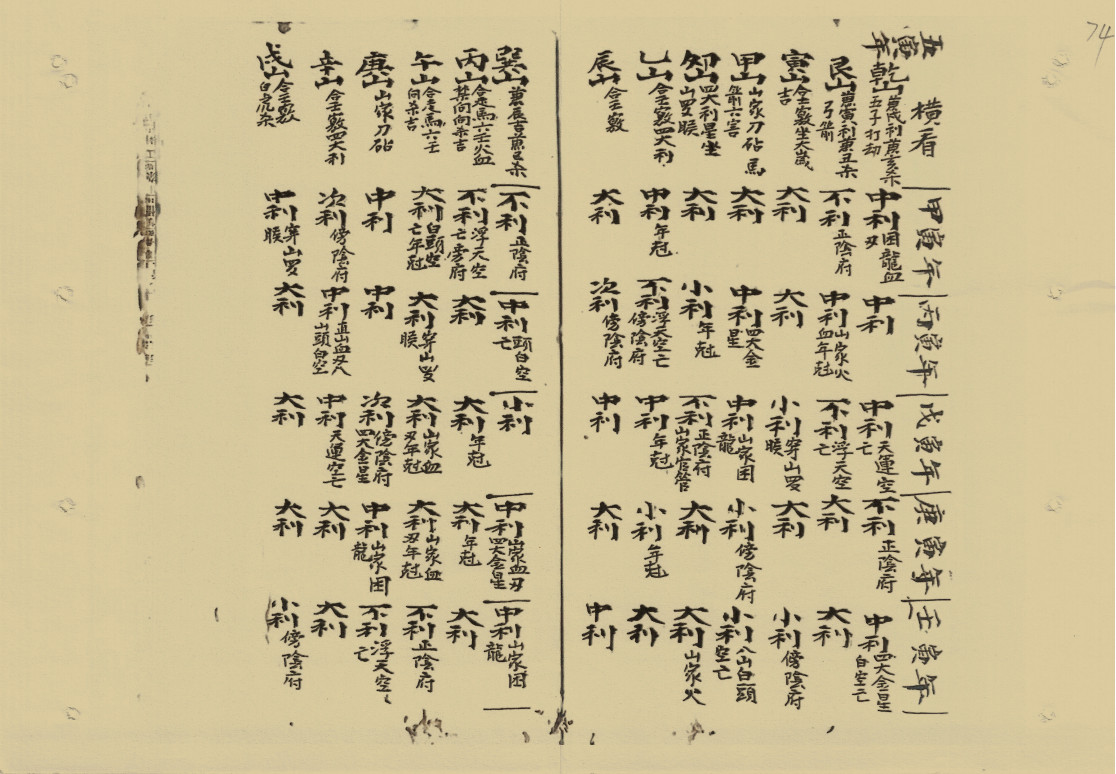 74
五寅年
橫看
甲寅年
丙寅年
戊寅年
庚寅年
壬寅年
乾山
五子打劫
中利 困龍血刃
中利
中利 天運空亡
不利 正陰府
中利 四大金星 白空亡
艮山
弓箭
不利 正陰府
中利 山家火血年尅
不利 浮天空亡
大利
大利
寅山 坐大歲 吉
大利
大利
小利 穿山罗睺
大利
小利 傍陰府
甲山 山家刀砧 馬箭六害
大利
中利 四大金星
中利 山家困龍
小利 傍陰府
小利 八山白頭空亡
卯山 四大利星坐山罗睺
大利
小利 年尅
不利 正陰府 山家官符
大利
大利 山家火
乙山 四大利
中利 年尅
不利 浮天空亡 傍陰府
中利 年尅
小利 年尅
大利
辰山
大利
次利 傍陰府
中利
大利
中利
巽山
不利 正陰府
中利 頭白空亡
小利
中利 山家血刃 四大金星
中利 山家困龍
丙山
不利 浮天空亡 傍府
大利
大利 年尅
大利 年尅
大利
午山 六壬 向杀吉
大利 白頭空亡年尅
大利 穿山罗睺
大利 山家血刃年尅
大利 山家血刃年尅
不利 正陰府
庚山 山家刀砧
中利
中利
次利 傍陰府 四大金星
中利 山家困龍
不利 浮天空亡
辛山 四大利
次利 傍陰府
中利 血刃 山頭白空
中利 天運空亡
大利
大利
戌山 白虎杀
中利 穿山罗睺
大利
大利
大利
小利 傍陰府